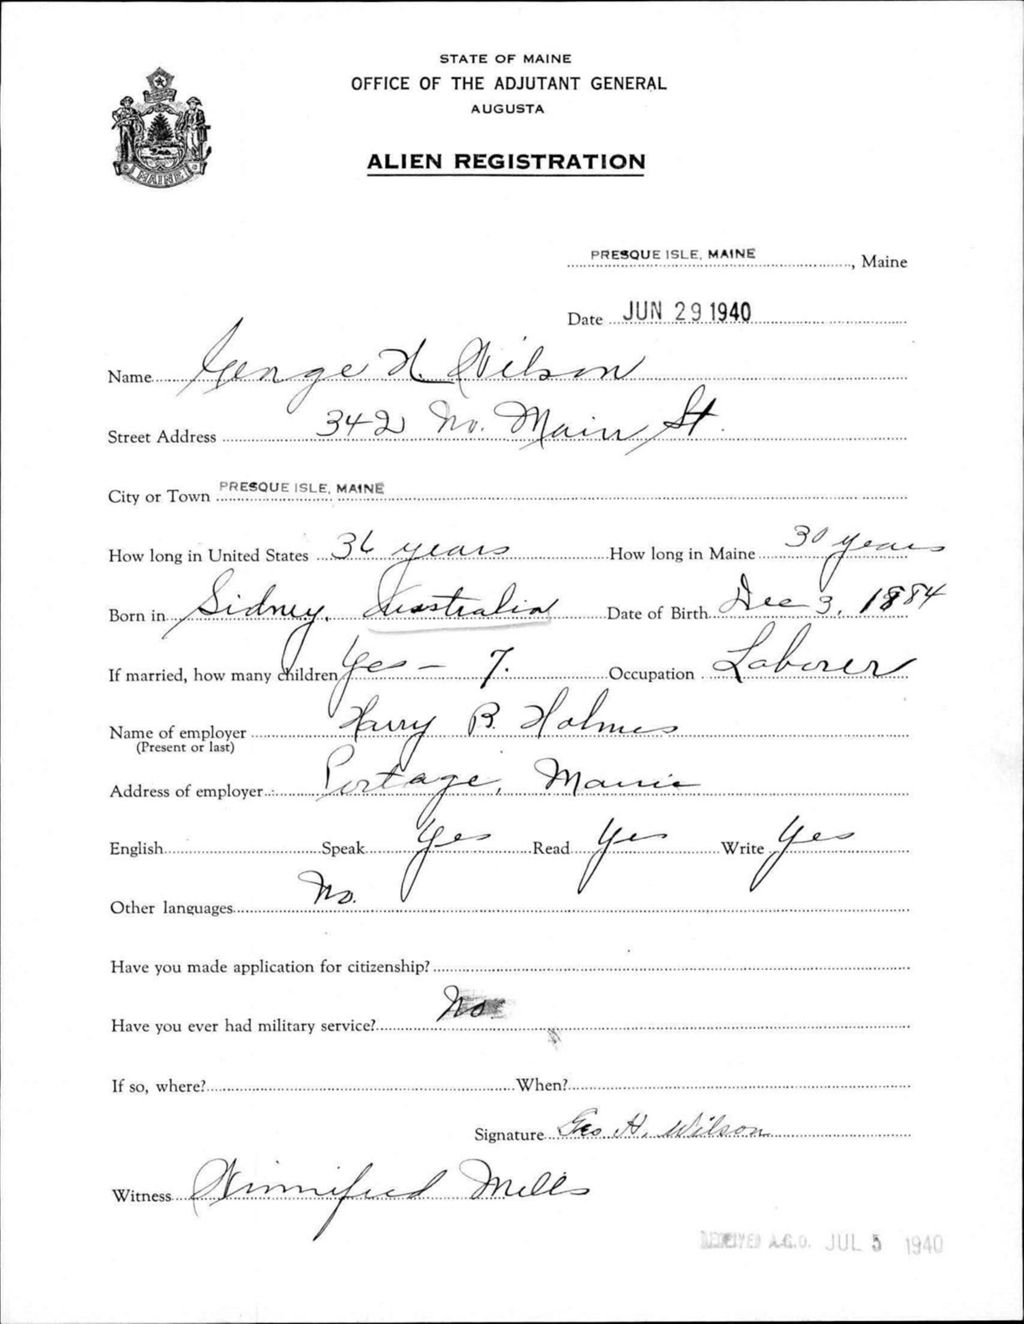 STATE OF MAINE
OFFICE OF THE ADJUTANT GENERAL
AUGUSTA
ALIEN REGISTRATION
MAINE
PRESQUE ISLE, MAINE, Maine
Date JUN 29 1940
Name George H. Wilson
Street Address 342 No. Main St.
City or Town PRESQUE ISLE, MAINE
How long in United States 36 years How long in Maine 30 years
Born in Sidney, Australia Date of Birth Dec 3, 1884
If married, how many children Yes - 7. Occupation Laborer
Name of employer Harry B. Holmes
(Present or last)
Address of employer Portage, Maine
English Speak Yes Read Yes Write Yes
Other languages No.
Have you made application for citizenship?
Have you ever had military service? No
If so, where? When?
Signature Geo H. Wilson
Witness Winnifred Mills
RECEIVED A.G.O. JUL 5 1940